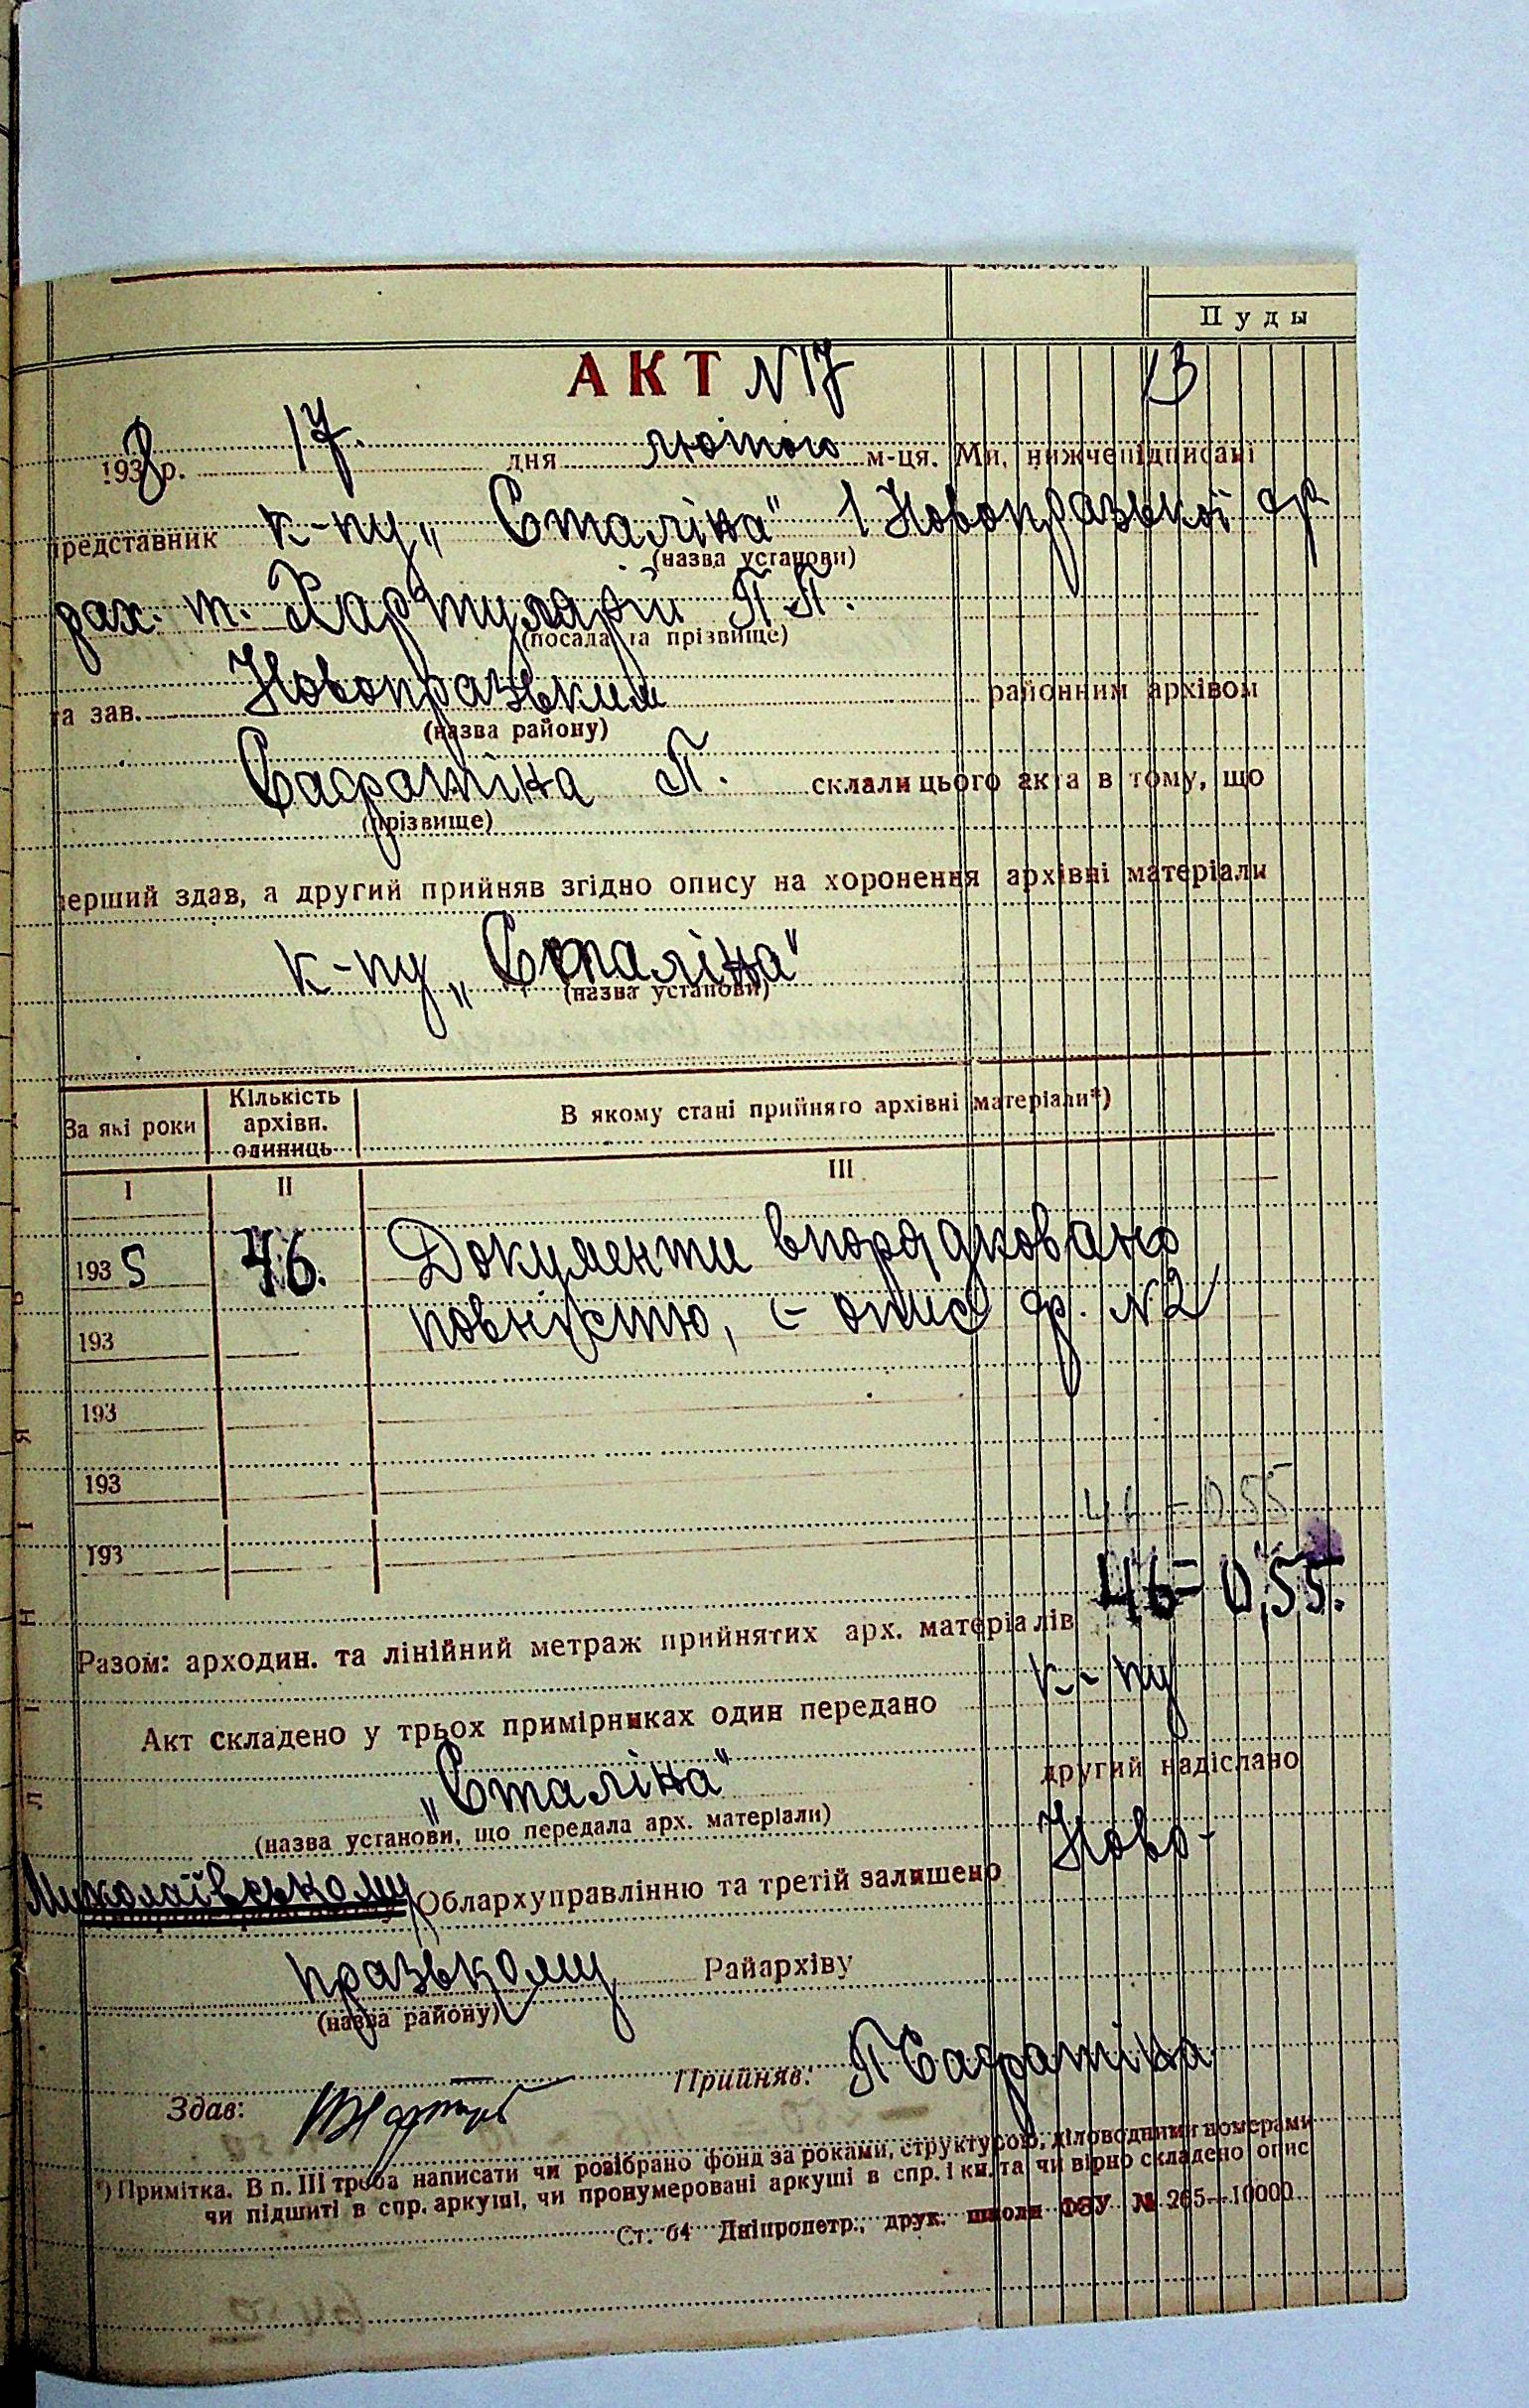 Пуды
АКТ N17
13
1938 р. 17. дня лютого м-ця. Ми, нижчепідписані
представник к-пу „Сталіна" 1 Новопразької
(назва установи)
рах. т. Хартуларій П.П.
(посада та прізвище)
та зав. Новопразьким районним архівом
(назва району)
Сафратіна П. склали цього акта в тому, що
(прізвище)
перший здав, а другий прийняв згідно опису на хоронення архівні матеріали
к-пу „Сталіна"
(назва установи)
За які роки Кількість архівн. одиниць В якому стані прийнято архівні матеріали*)
I II III
1935 46. Документи впорядковано
193 повністю, є опис ф. N2
193
193
46 - 0.55
193
46 = 0,55.
Разом: арходин. та лінійний метраж прийнятих арх. матеріалів
Акт складено у трьох примірниках один передано к-пу
„Сталіна" другий надіслано
(назва установи, що передала арх. матеріали)
Миколаївському Обларху­правлінню та третій залишено Ново-
празькому Райархіву
(назва району)
Здав: Прийняв: П Сафратіна
*) Примітка. В п. III треба написати чи розібрано фонд за роками, структурою, діловодними номерами
чи підшиті в спр. аркуші, чи пронумеровані аркуші в спр. і кн. та чи вірно складено опис
Ст. 64 Дніпропетр., друк. школи ФЗУ № 265—10000